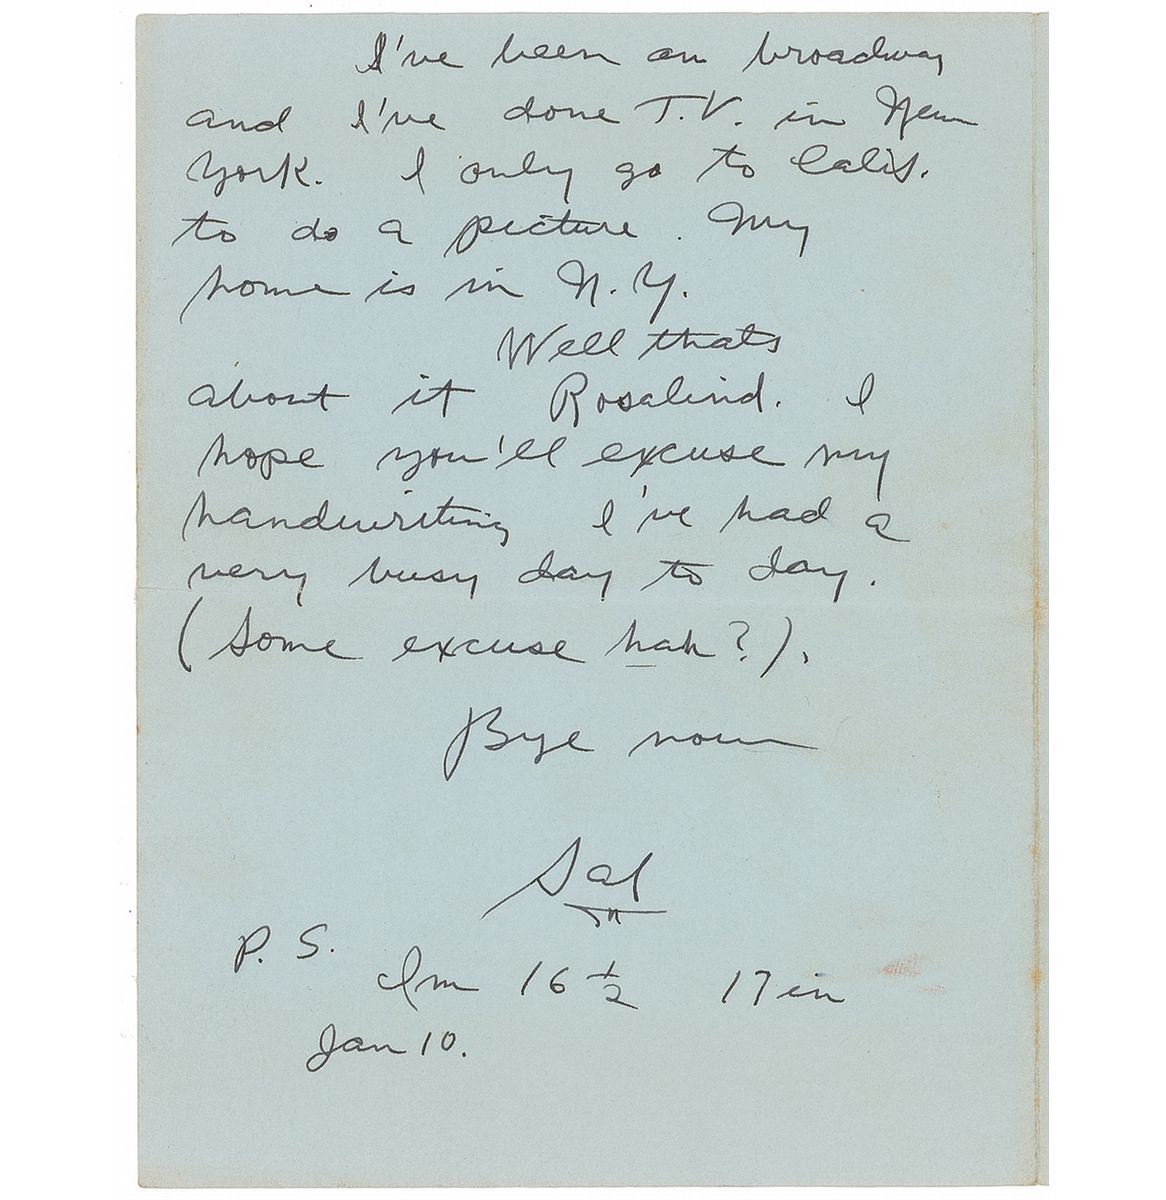 I've been on broadway
and I've done T.V. in New
York. I only go to Calif.
to do a picture. My
home is in N.Y.
Well thats
about it Rosalind. I
hope you'll excuse my
handwriting I've had a
very busy day to day.
(Some excuse hah?).
Bye now
Sal
P. S.
Im 16 1/2 17 in
Jan 10.